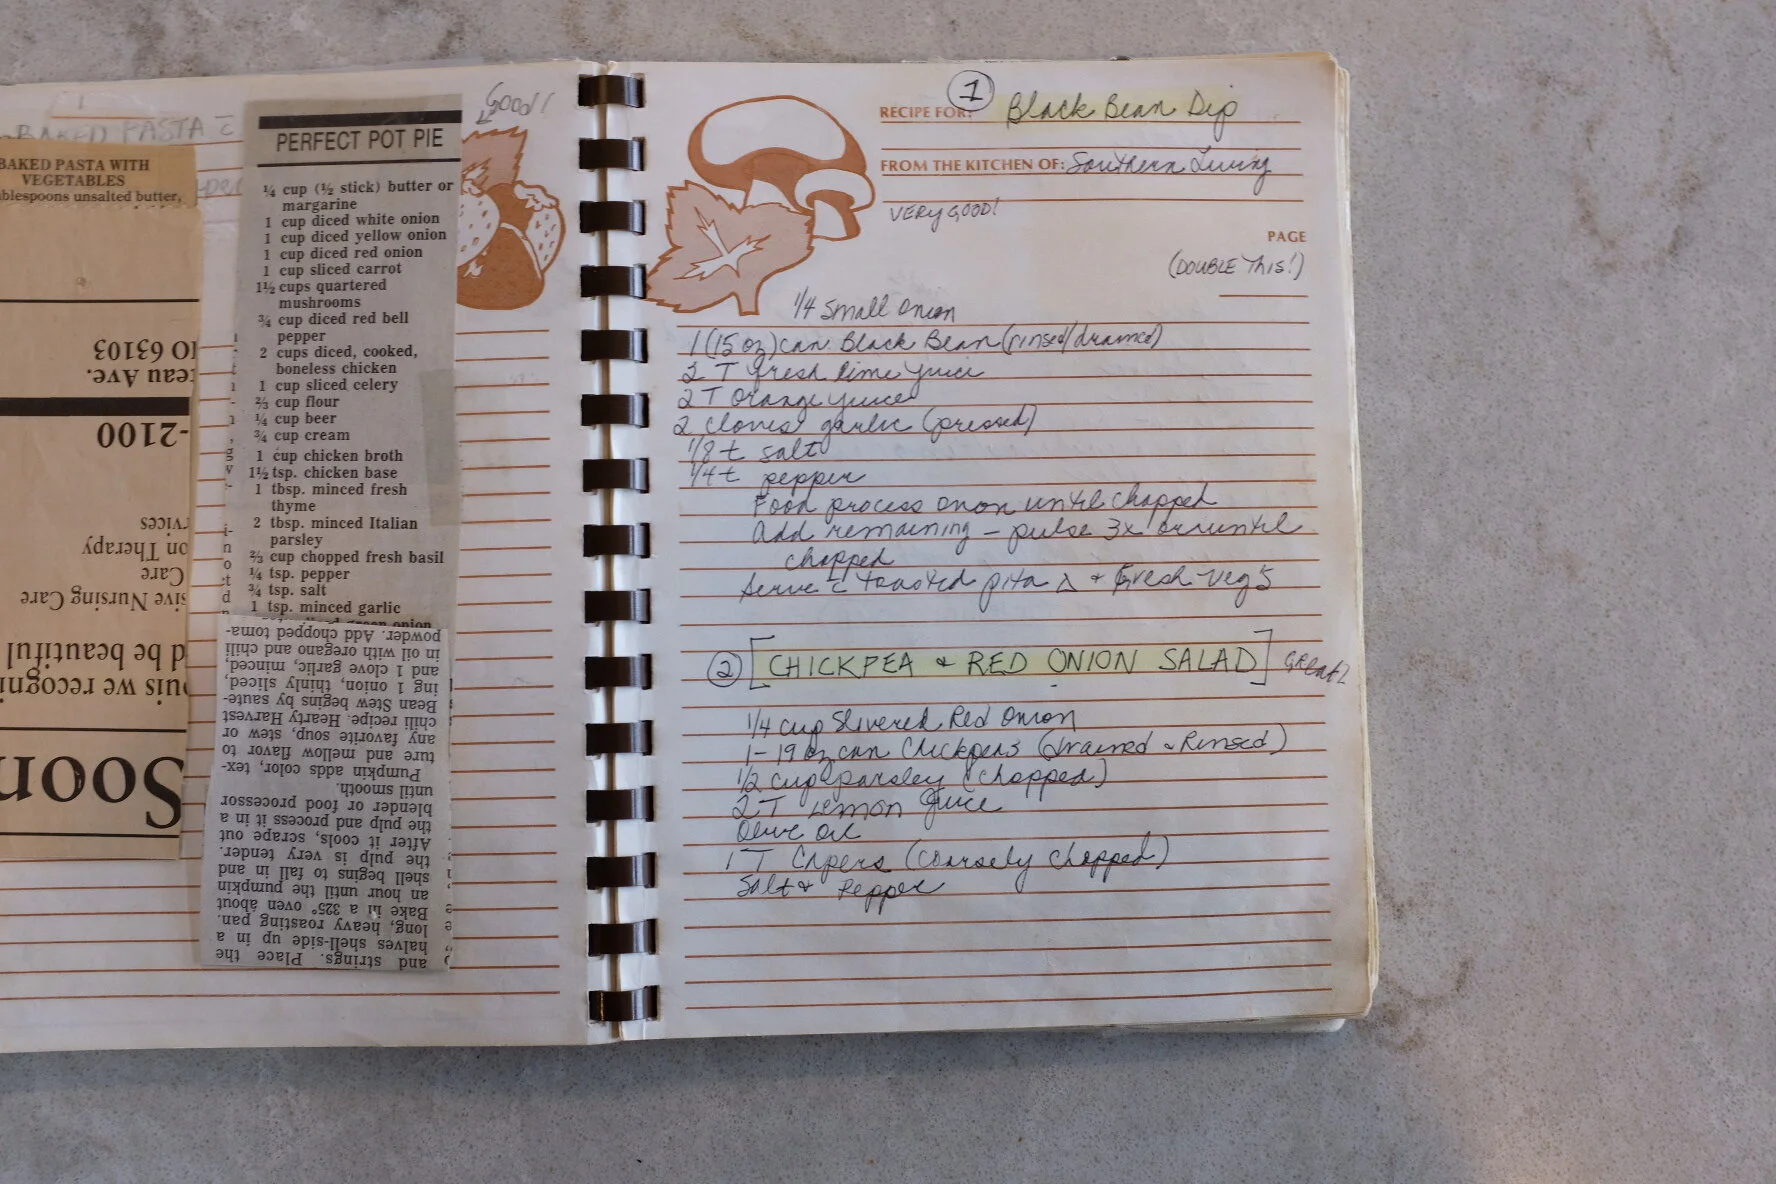 BAKED PASTA
BAKED PASTA WITH
VEGETABLES
blespoons unsalted butter,
IO 63103
eau Ave.
-2100
rvices
on Therapy
Care
sive Nursing Care
d be beautiful
uis we recogni
Soon
Good!
PERFECT POT PIE
¼ cup (½ stick) butter or
margarine
1 cup diced white onion
1 cup diced yellow onion
1 cup diced red onion
1 cup sliced carrot
1½ cups quartered
mushrooms
¾ cup diced red bell
pepper
2 cups diced, cooked,
boneless chicken
1 cup sliced celery
⅔ cup flour
¼ cup beer
¾ cup cream
1 cup chicken broth
1½ tsp. chicken base
1 tbsp. minced fresh
thyme
2 tbsp. minced Italian
parsley
⅔ cup chopped fresh basil
¼ tsp. pepper
¾ tsp. salt
1 tsp. minced garlic
green onion
and strings. Place the
halves shell-side up in a
long, heavy roasting pan.
Bake in a 325° oven about
an hour until the pumpkin
shell begins to fall in and
the pulp is very tender.
After it cools, scrape out
the pulp and process it in a
blender or food processor
until smooth.
Pumpkin adds color, tex-
ture and mellow flavor to
any favorite soup, stew or
chili recipe. Hearty Harvest
Bean Stew begins by saute-
ing 1 onion, thinly sliced,
and 1 clove garlic, minced,
in oil with oregano and chili
powder. Add chopped toma-
RECIPE FOR: 1 Black Bean Dip
FROM THE KITCHEN OF: Southern Living
VERY GOOD!
PAGE
(DOUBLE This!)
1/4 Small Onion
1 (15 oz) can Black Bean (rinsed/drained)
2 T fresh lime juice
2 T Orange juice
2 cloves garlic (pressed)
1/8 t salt
1/4 t pepper
Food process onion until chopped
Add remaining - pulse 3x or until
chopped
Serve c̄ toasted pita △ + fresh veg's
2 [CHICKPEA + RED ONION SALAD] Great!
1/4 cup Slivered Red Onion
1-19 oz can Chickpeas (drained + Rinsed)
1/2 cup parsley (chopped)
2 T Lemon Juice
Olive oil
1 T Capers (coarsely chopped)
Salt + Pepper